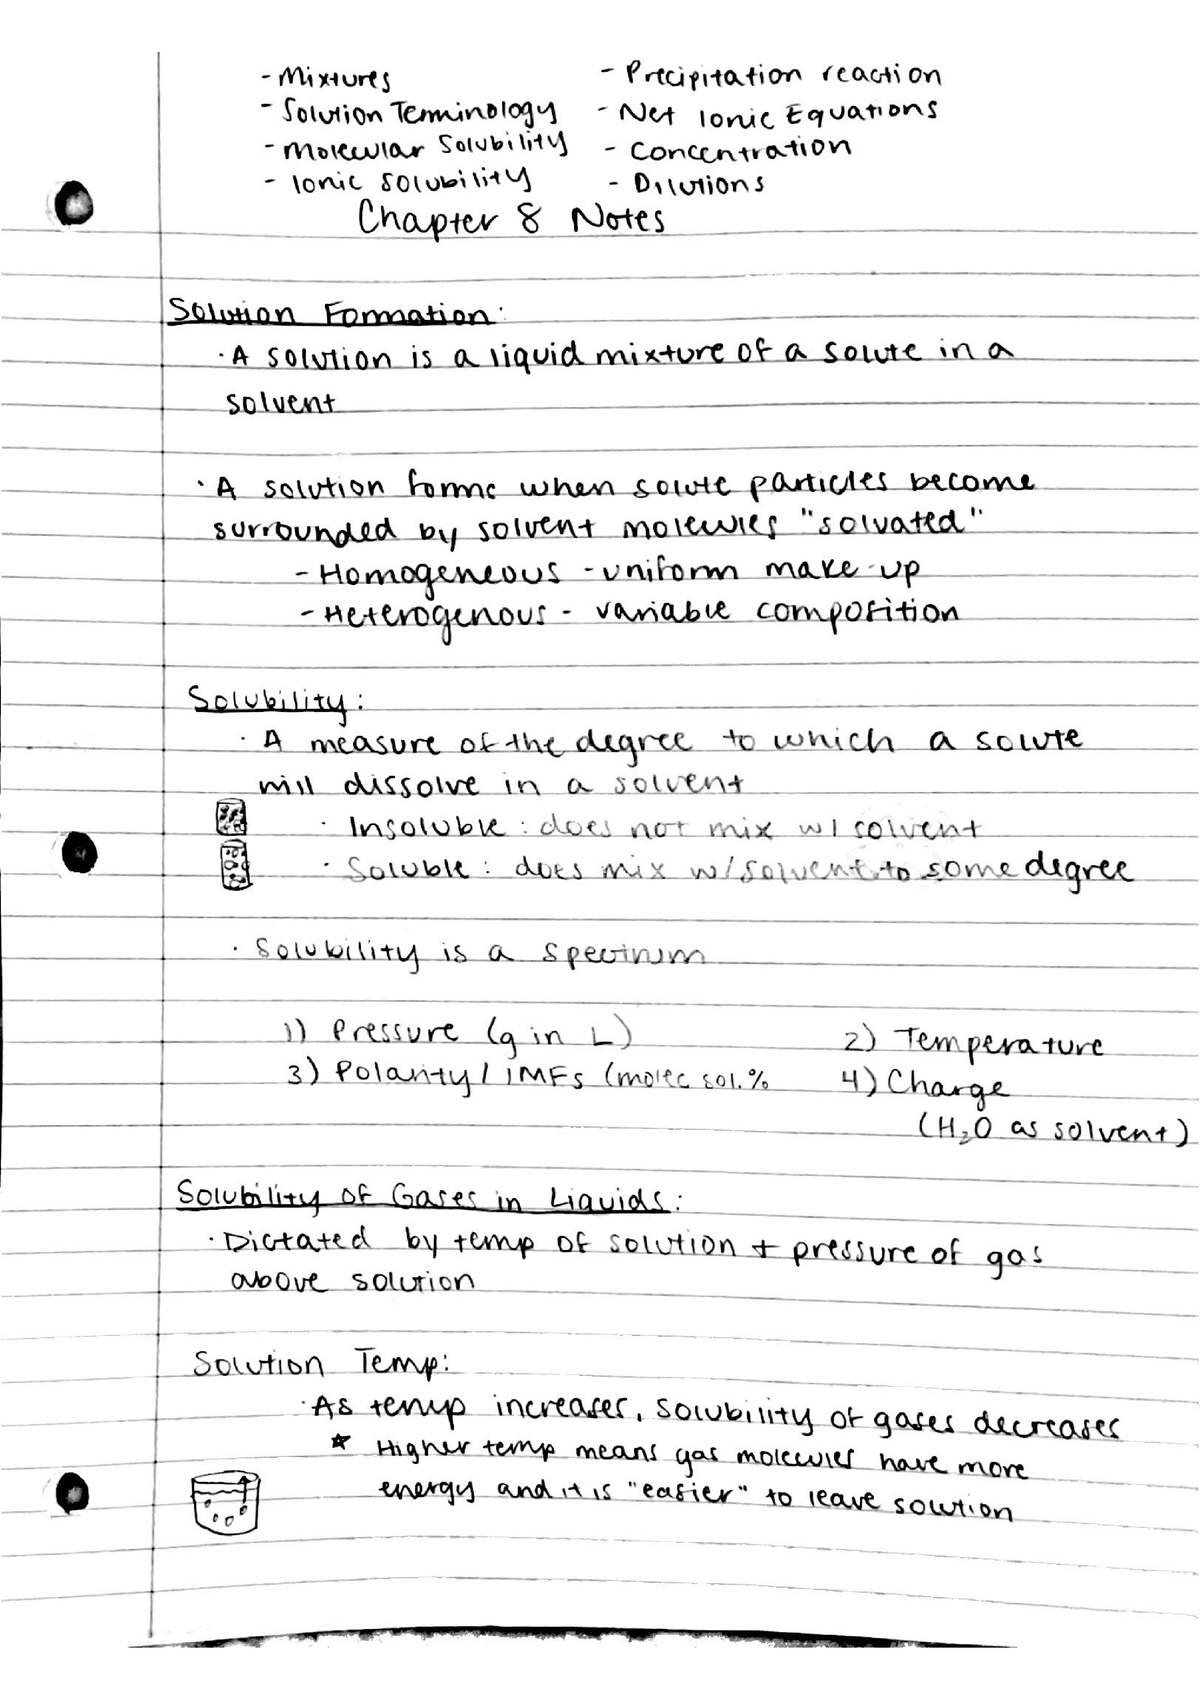 - Mixtures
- Solution Terminology
- Molecular Solubility
- Ionic Solubility
- Precipitation reaction
- Net Ionic Equations
- Concentration
- Dilutions
Chapter 8 Notes
Solution Formation:
· A solution is a liquid mixture of a solute in a
solvent
· A solution forms when solute particles become
surrounded by solvent molecules "solvated"
- Homogeneous - uniform make-up
- Heterogenous - variable composition
Solubility:
· A measure of the degree to which a solute
will dissolve in a solvent
· Insoluble: does not mix w/ solvent
· Soluble: does mix w/ solvent to some degree
· Solubility is a spectrum
1) Pressure (g in L)
2) Temperature
3) Polarity / IMFs (molec sol.%
4) Charge
(H₂O as solvent)
Solubility of Gases in Liquids:
· Dictated by temp of solution + pressure of gas
above solution
Solution Temp:
· As temp increases, solubility of gases decreases
* Higher temp means gas molecules have more
energy and it is "easier" to leave solution